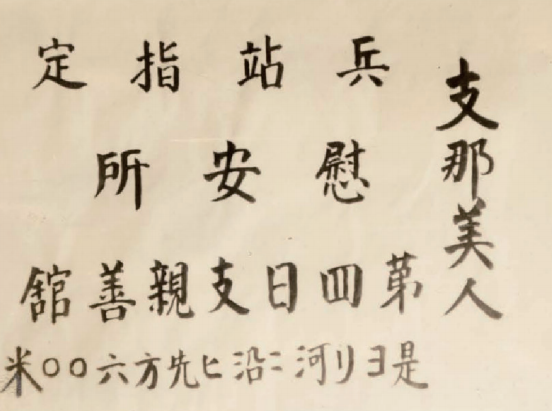 支那美人
兵站指定
慰安所
第四日支親善舘
是ヨリ河ニ沿ヒ先方六〇〇米